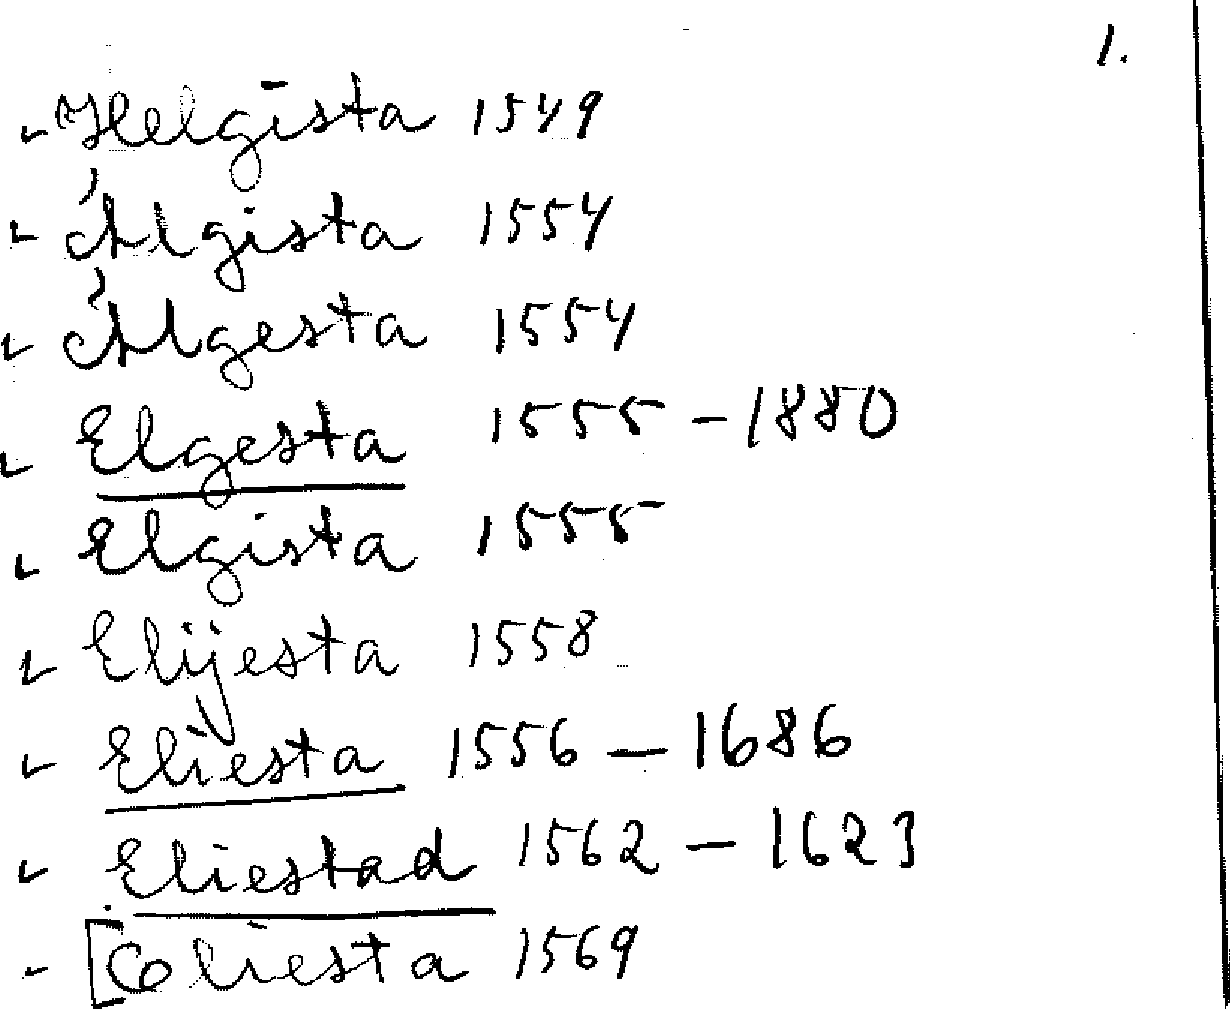 1.
Helgista 1549
Álgista 1554
Álgesta 1554
Elgesta 1555 - 1880
Elgista 1555
Elijesta 1558
Eliesta 1556 - 1686
Eliestad 1562 - 1623
[Coliesta 1569